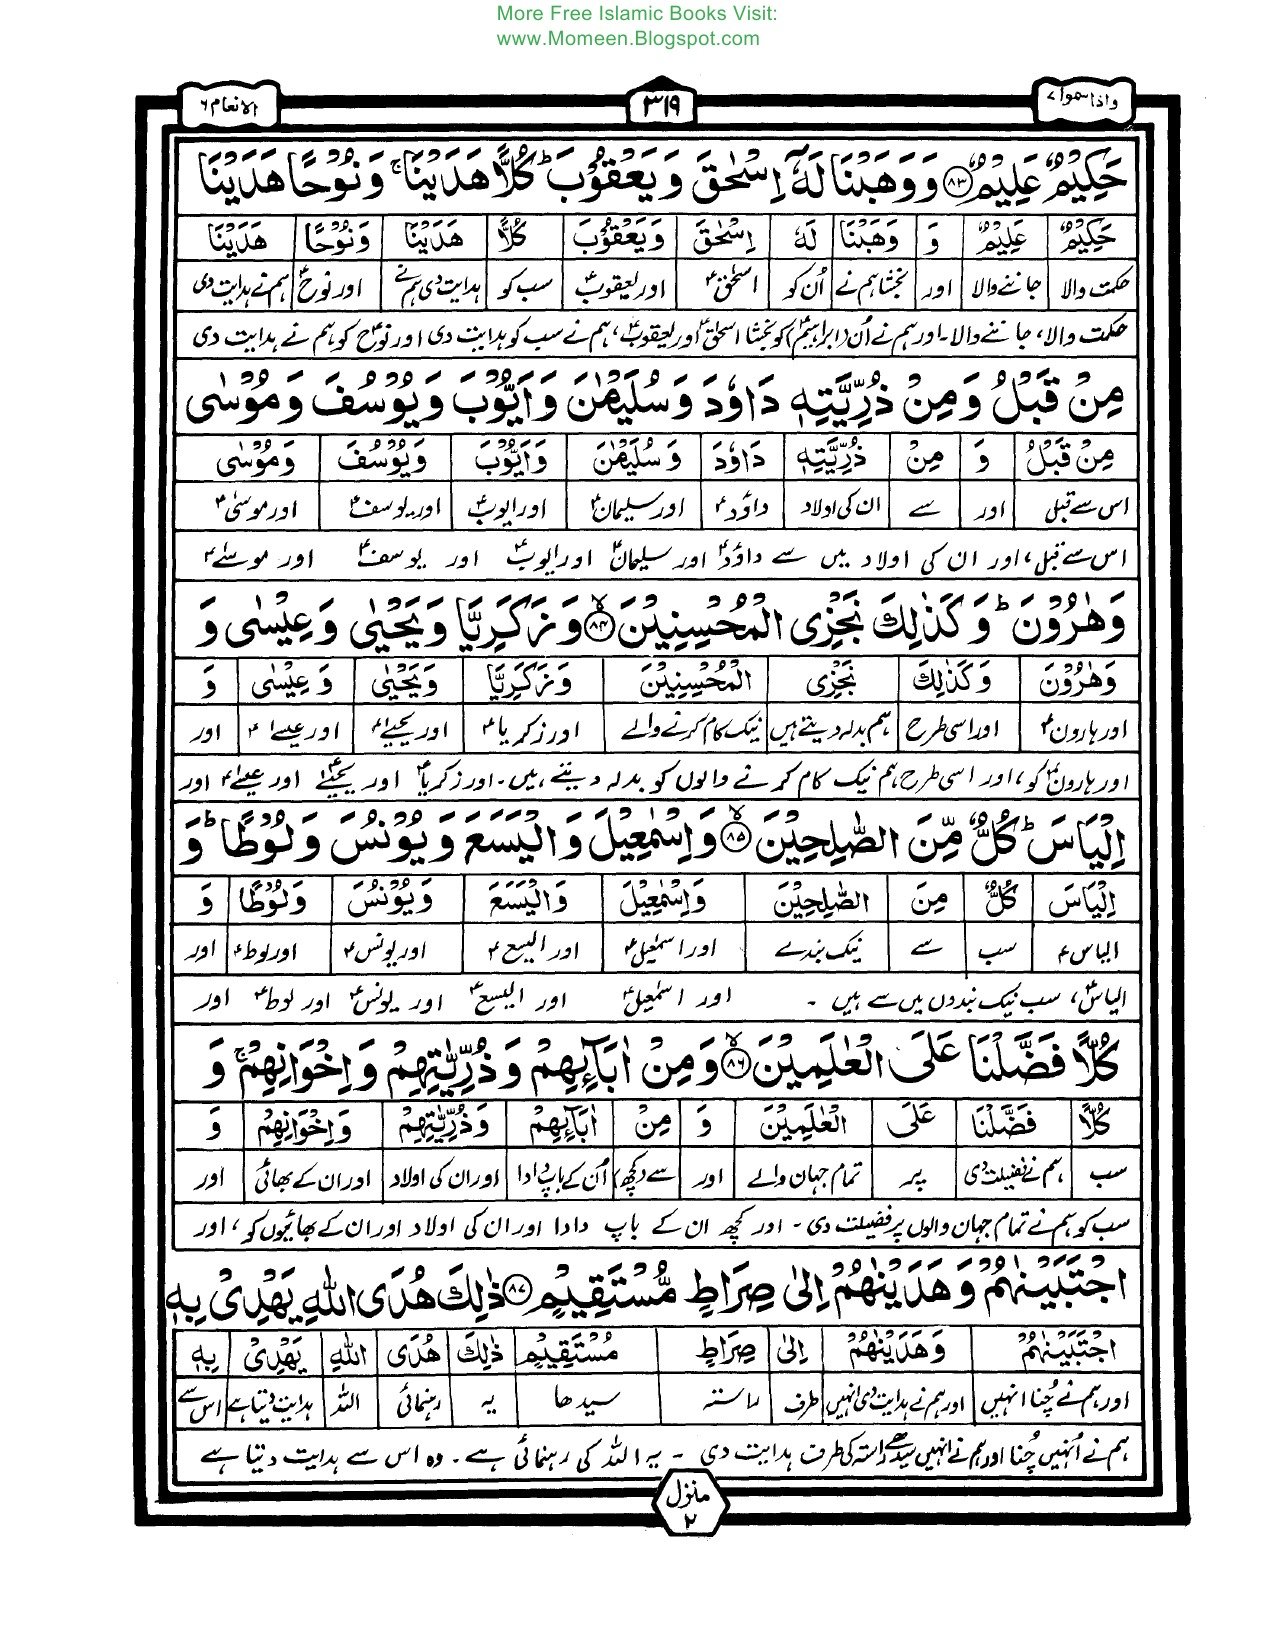 More Free Islamic Books Visit:
www.Momeen.Blogspot.com
واذا سمعوا ٧
٣١٩
الانعام ٦
حَكِيْمٌ عَلِيْمٌ ﴿٨٣﴾ وَوَهَبْنَا لَهٗٓ اِسْحٰقَ وَيَعْقُوْبَ ؕ كُلًّا هَدَيْنَا ۚ وَنُوْحًا هَدَيْنَا
حَكِيْمٌ عَلِيْمٌ وَ وَهَبْنَا لَهٗ اِسْحٰقَ وَيَعْقُوْبَ كُلًّا هَدَيْنَا وَنُوْحًا هَدَيْنَا
حکمت والا جاننے والا اور بخشا ہم نے اُن کو اسحٰقؑ اور یعقوبؑ سب کو ہدایت دی ہم نے اور نوحؑ ہم نے ہدایت دی
حکمت والا، جاننے والا۔ اور ہم نے اُن (ابراہیمؑ) کو بخشا اسحٰقؑ اور یعقوبؑ، ہم نے سب کو ہدایت دی اور نوحؑ کو ہم نے ہدایت دی
مِنْ قَبْلُ وَمِنْ ذُرِّيَّتِهٖ دَاوٗدَ وَسُلَيْمٰنَ وَاَيُّوْبَ وَيُوْسُفَ وَمُوْسٰى
مِنْ قَبْلُ وَ مِنْ ذُرِّيَّتِهٖ دَاوٗدَ وَسُلَيْمٰنَ وَاَيُّوْبَ وَيُوْسُفَ وَمُوْسٰى
اس سے قبل اور سے ان کی اولاد داوٗدؑ اور سلیمانؑ اور ایوبؑ اور یوسفؑ اور موسیٰؑ
اس سے قبل، اور ان کی اولاد میں سے داوٗدؑ اور سلیمانؑ اور ایوبؑ اور یوسفؑ اور موسےٰؑ
وَهٰرُوْنَ ؕ وَكَذٰلِكَ نَجْزِى الْمُحْسِنِيْنَ ﴿٨٤﴾ وَزَكَرِيَّا وَيَحْيٰى وَعِيْسٰى وَ
وَهٰرُوْنَ وَكَذٰلِكَ نَجْزِى الْمُحْسِنِيْنَ وَزَكَرِيَّا وَيَحْيٰى وَعِيْسٰى وَ
اور ہارونؑ اور اسی طرح ہم بدلہ دیتے ہیں نیک کام کرنے والے اور زکریاؑ اور یحییٰؑ اور عیسےٰؑ اور
اور ہارونؑ کو، اور اسی طرح ہم نیک کام کرنے والوں کو بدلہ دیتے ہیں۔ اور زکریاؑ اور یحییٰؑ اور عیسےٰؑ اور
اِلْيَاسَ ؕ كُلٌّ مِّنَ الصّٰلِحِيْنَ ﴿٨٥﴾ وَاِسْمٰعِيْلَ وَالْيَسَعَ وَيُوْنُسَ وَلُوْطًا ؕ وَ
اِلْيَاسَ كُلٌّ مِنَ الصّٰلِحِيْنَ وَاِسْمٰعِيْلَ وَالْيَسَعَ وَيُوْنُسَ وَلُوْطًا وَ
الیاسؑ سب سے نیک بندے اور اسمٰعیلؑ اور الیسعؑ اور یونسؑ اور لوطؑ اور
الیاسؑ، سب نیک بندوں میں سے ہیں۔ اور اسمٰعیلؑ اور الیسعؑ اور یونسؑ اور لوطؑ اور
كُلًّا فَضَّلْنَا عَلَى الْعٰلَمِيْنَ ﴿٨٦﴾ وَمِنْ اٰبَآئِهِمْ وَذُرِّيّٰتِهِمْ وَاِخْوَانِهِمْ ۚ وَ
كُلًّا فَضَّلْنَا عَلَى الْعٰلَمِيْنَ وَ مِنْ اٰبَآئِهِمْ وَذُرِّيّٰتِهِمْ وَاِخْوَانِهِمْ وَ
سب ہم نے فضیلت دی پر تمام جہان والے اور سے (کچھ) اُن کے باپ دادا اور ان کی اولاد اور ان کے بھائی اور
سب کو ہم نے تمام جہان والوں پر فضیلت دی۔ اور کچھ ان کے باپ دادا اور ان کی اولاد اور ان کے بھائیوں کو، اور
اجْتَبَيْنٰهُمْ وَهَدَيْنٰهُمْ اِلٰى صِرَاطٍ مُّسْتَقِيْمٍ ﴿٨٧﴾ ذٰلِكَ هُدَى اللّٰهِ يَهْدِىْ بِهٖ
اجْتَبَيْنٰهُمْ وَهَدَيْنٰهُمْ اِلٰى صِرَاطٍ مُسْتَقِيْمٍ ذٰلِكَ هُدَى اللّٰهِ يَهْدِىْ بِهٖ
اور ہم نے چُنا انہیں اور ہم نے ہدایت دی انہیں طرف راستہ سیدھا یہ رہنمائی اللہ ہدایت دیتا ہے اس سے
ہم نے اُنہیں چُنا اور ہم نے انہیں سیدھے راستہ کی طرف ہدایت دی۔ یہ اللہ کی رہنمائی ہے۔ وہ اس سے ہدایت دیتا ہے
منزل
٢